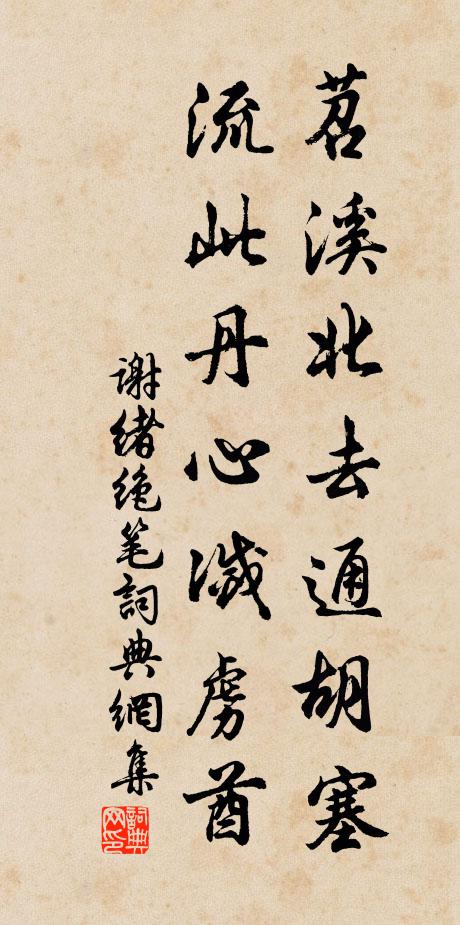 苕溪北去通胡塞
流此丹心滅虜酋
谢绪绝笔詞典網集
詞典网印